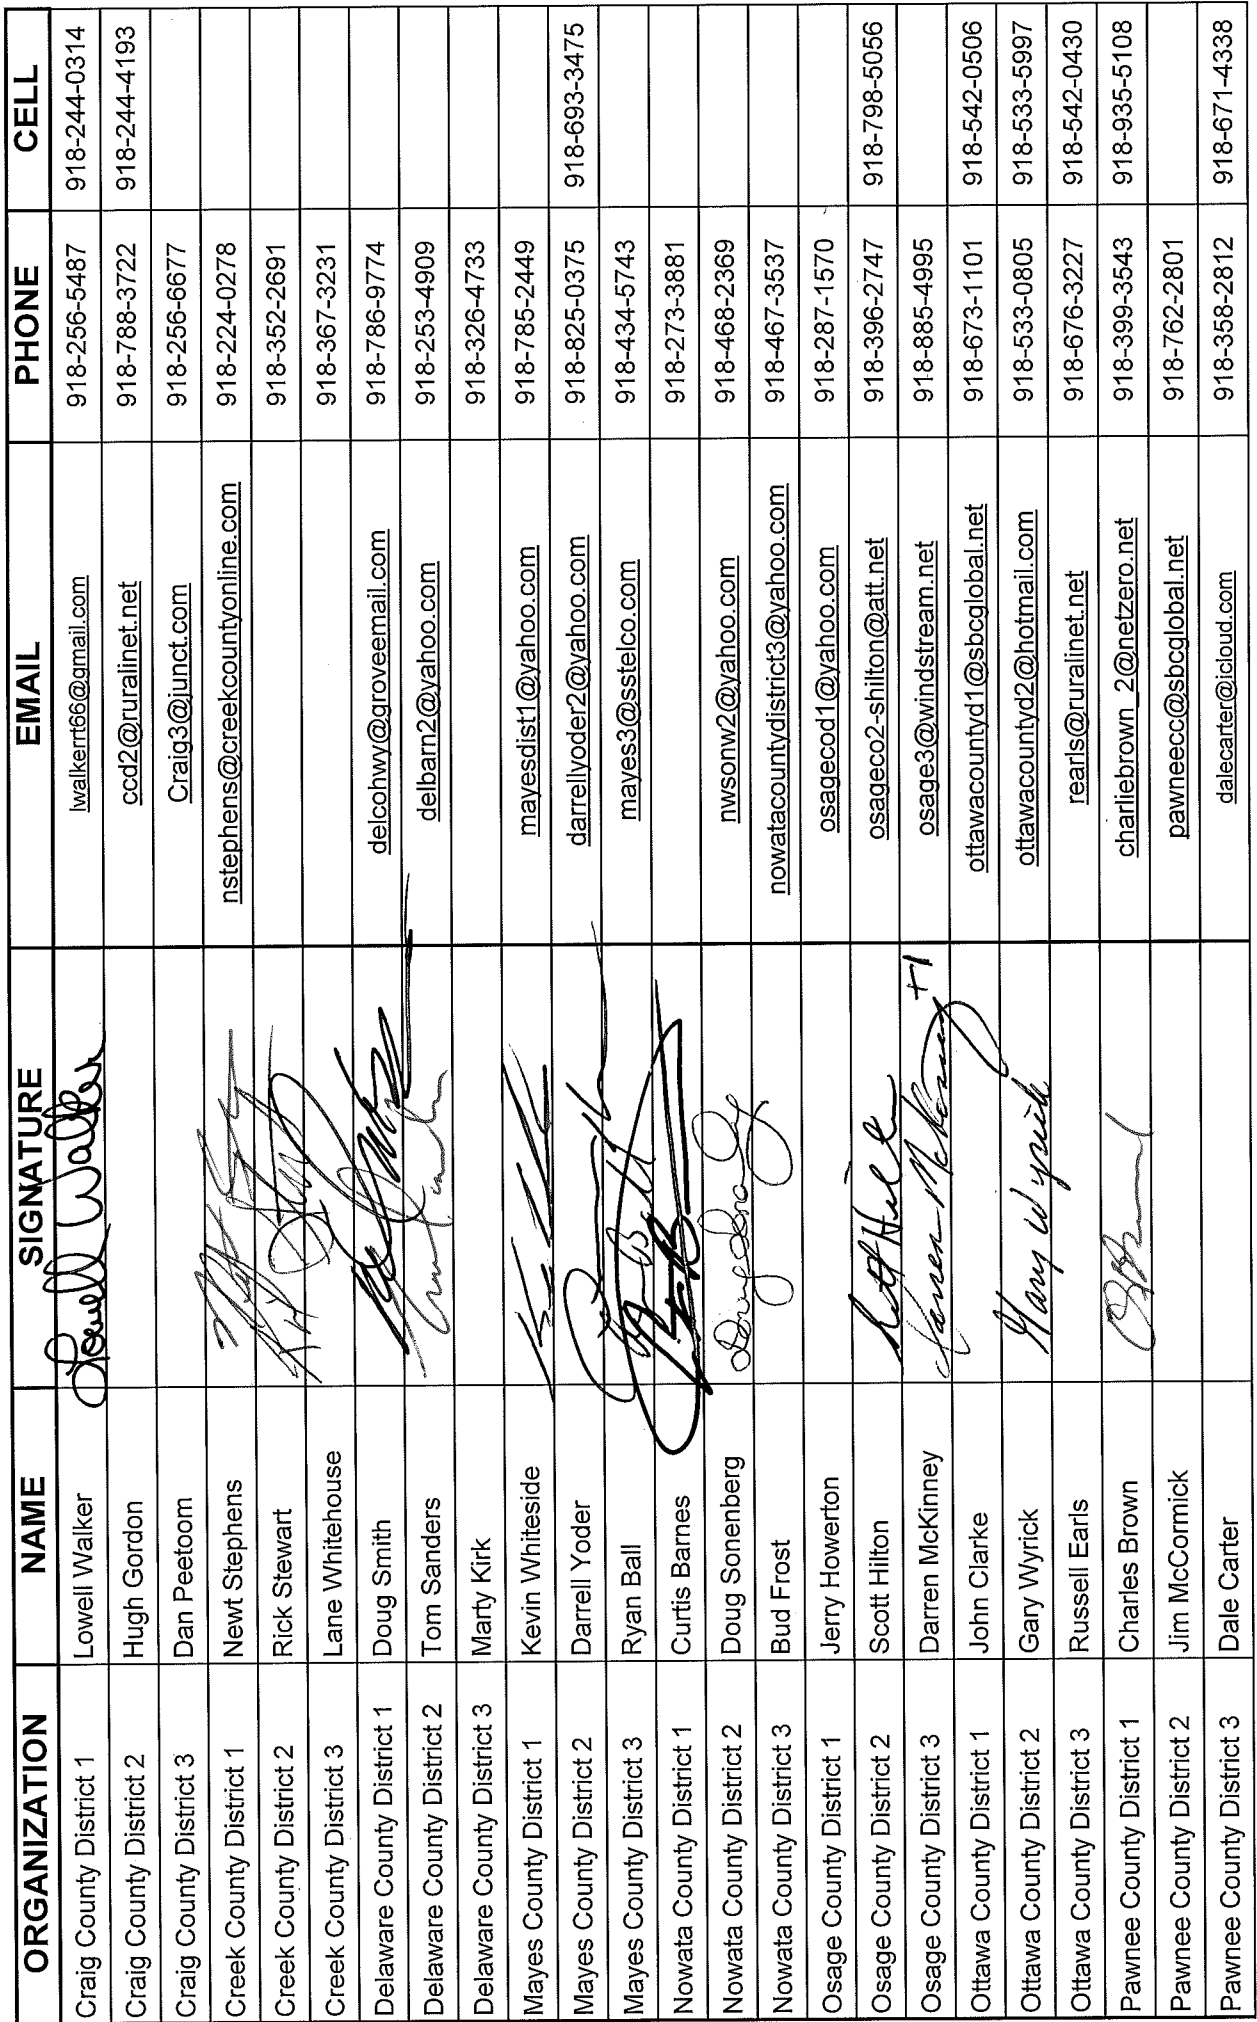 ORGANIZATION NAME SIGNATURE EMAIL PHONE CELL
Craig County District 1 Lowell Walker Lowell Walker lwalkerrt66@gmail.com 918-256-5487 918-244-0314
Craig County District 2 Hugh Gordon ccd2@ruralinet.net 918-788-3722 918-244-4193
Craig County District 3 Dan Peetoom Craig3@junct.com 918-256-6677
Creek County District 1 Newt Stephens nstephens@creekcountyonline.com 918-224-0278
Creek County District 2 Rick Stewart 918-352-2691
Creek County District 3 Lane Whitehouse 918-367-3231
Delaware County District 1 Doug Smith delcohwy@groveemail.com 918-786-9774
Delaware County District 2 Tom Sanders delbarn2@yahoo.com 918-253-4909
Delaware County District 3 Marty Kirk 918-326-4733
Mayes County District 1 Kevin Whiteside mayesdist1@yahoo.com 918-785-2449
Mayes County District 2 Darrell Yoder darrellyoder2@yahoo.com 918-825-0375 918-693-3475
Mayes County District 3 Ryan Ball mayes3@sstelco.com 918-434-5743
Nowata County District 1 Curtis Barnes 918-273-3881
Nowata County District 2 Doug Sonenberg nwsonw2@yahoo.com 918-468-2369
Nowata County District 3 Bud Frost nowatacountydistrict3@yahoo.com 918-467-3537
Osage County District 1 Jerry Howerton osagecod1@yahoo.com 918-287-1570
Osage County District 2 Scott Hilton osageco2-shilton@att.net 918-396-2747 918-798-5056
Osage County District 3 Darren McKinney Darren McKinney +1 osage3@windstream.net 918-885-4995
Ottawa County District 1 John Clarke ottawacountyd1@sbcglobal.net 918-673-1101 918-542-0506
Ottawa County District 2 Gary Wyrick Gary Wyrick ottawacountyd2@hotmail.com 918-533-0805 918-533-5997
Ottawa County District 3 Russell Earls rearls@ruralinet.net 918-676-3227 918-542-0430
Pawnee County District 1 Charles Brown charliebrown_2@netzero.net 918-399-3543 918-935-5108
Pawnee County District 2 Jim McCormick pawneecc@sbcglobal.net 918-762-2801
Pawnee County District 3 Dale Carter dalecarter@icloud.com 918-358-2812 918-671-4338